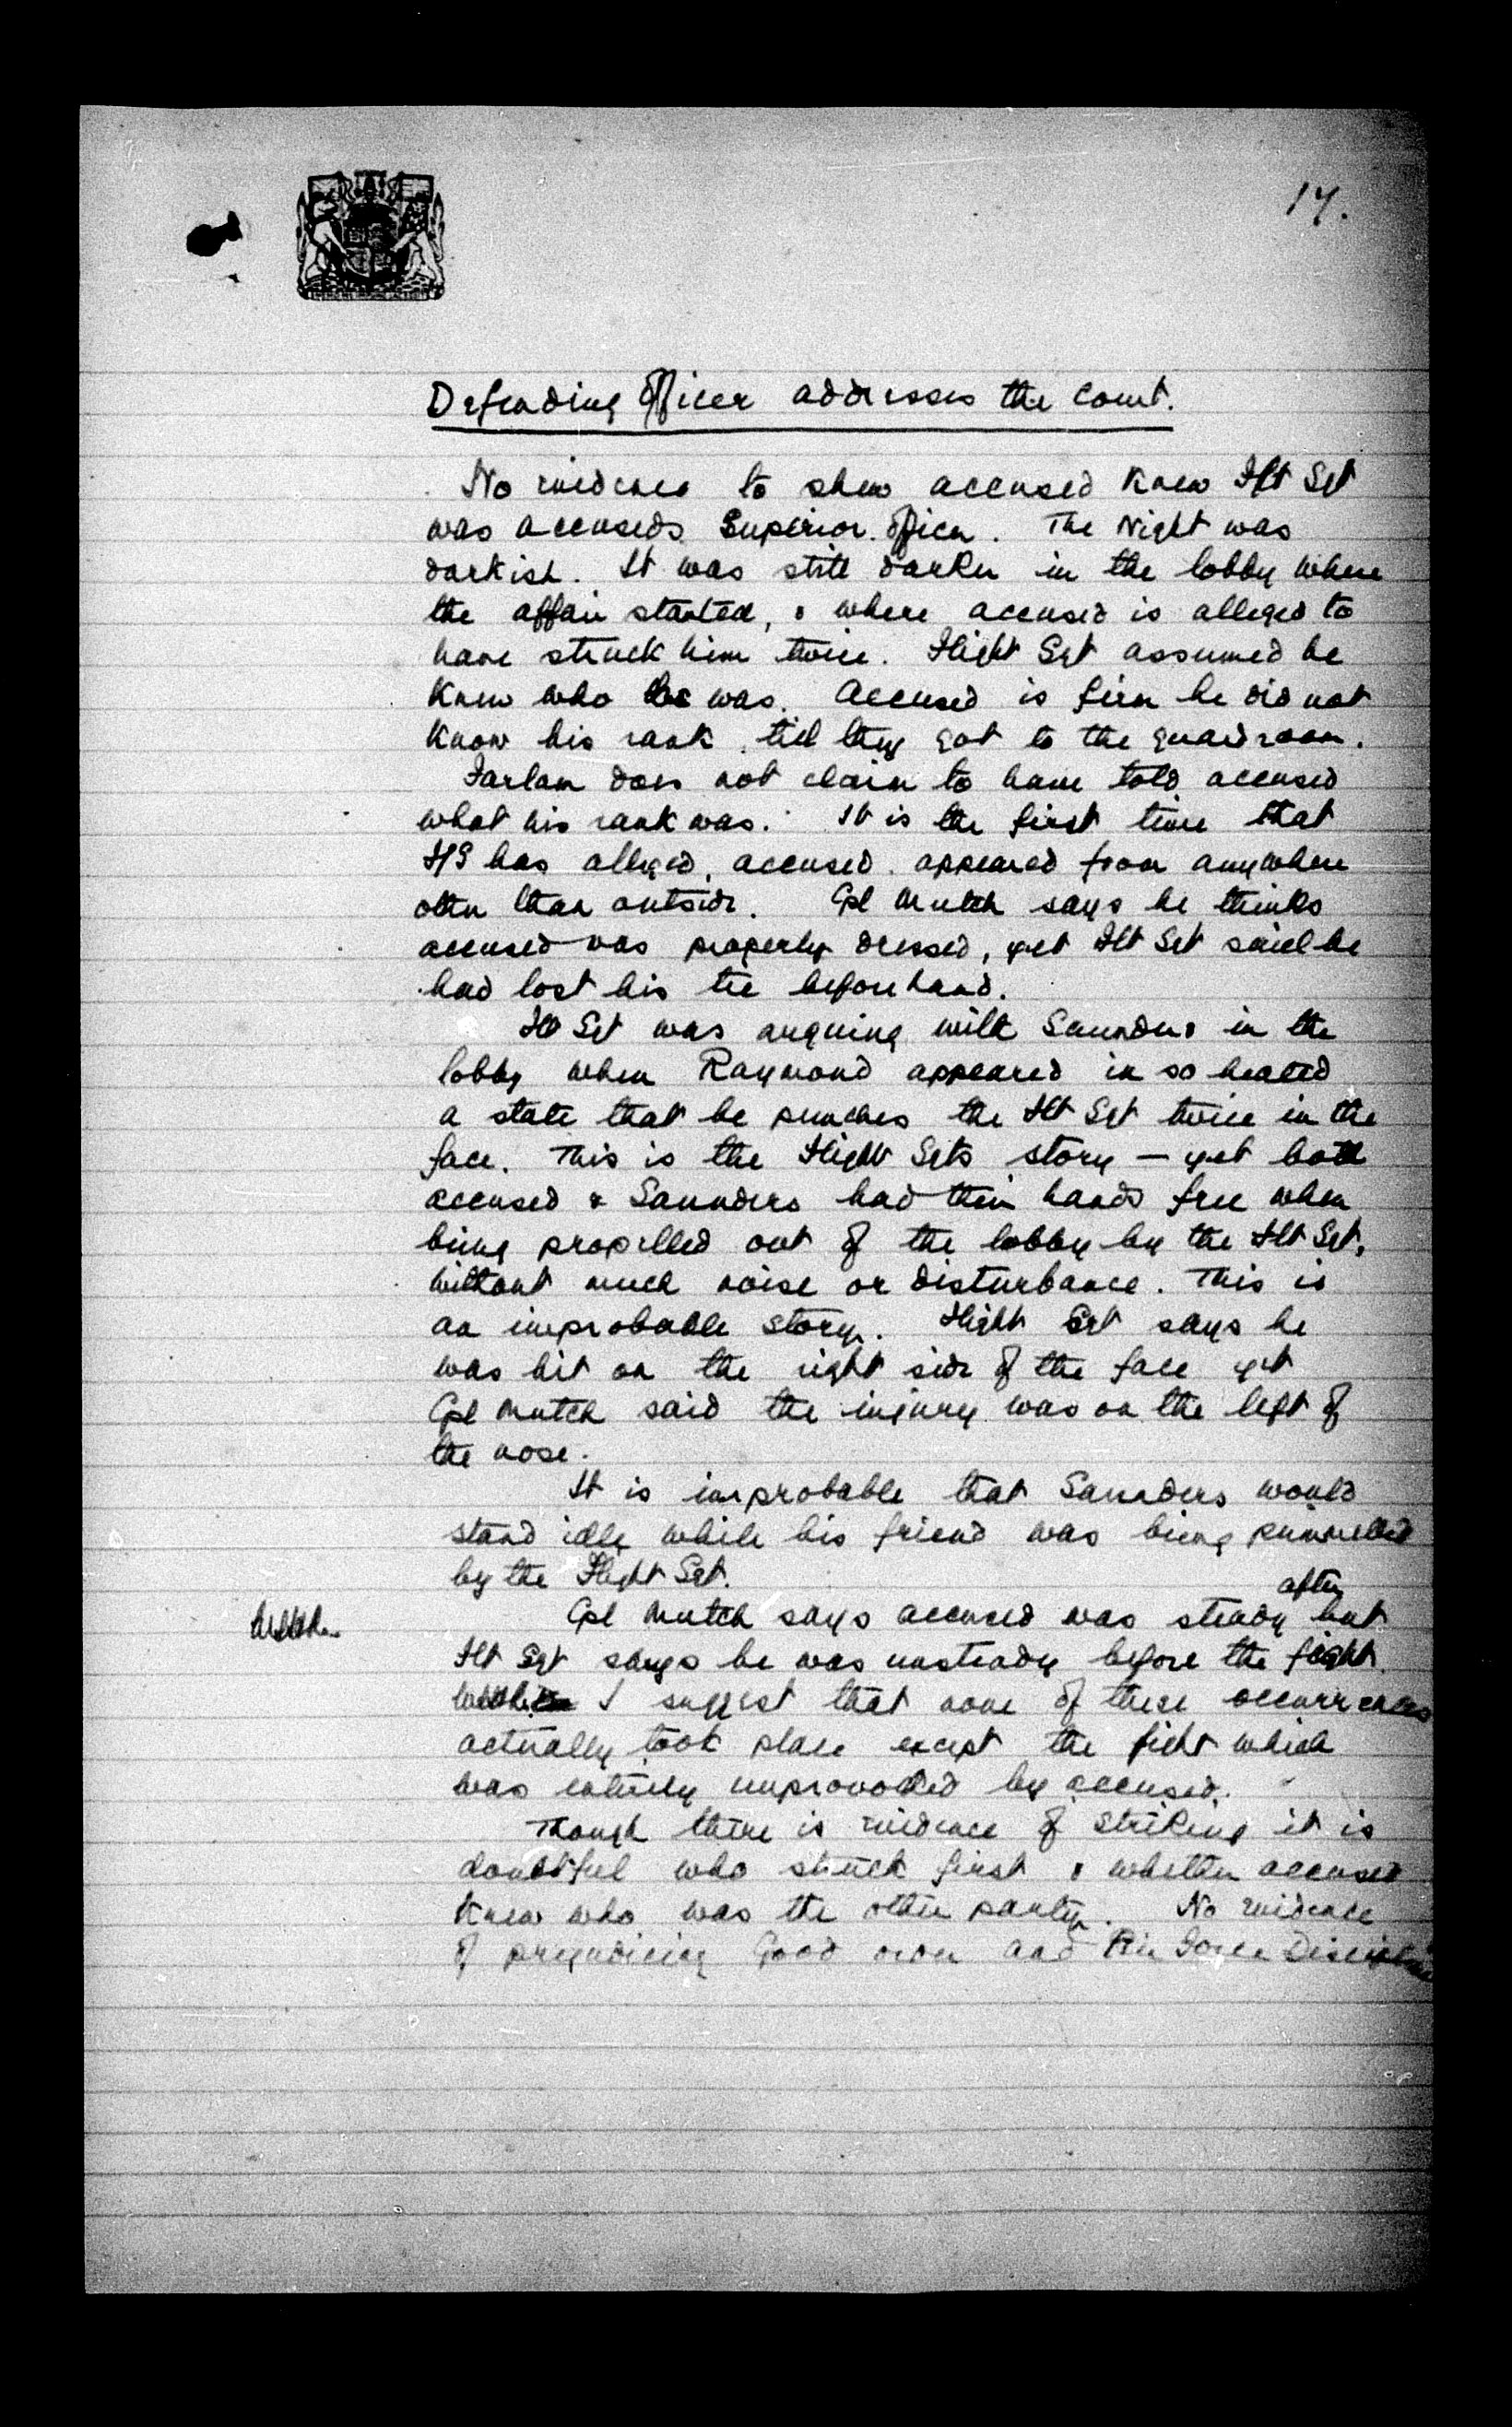 14.
Defending Officer addresses the Court.
No evidence to shew accused knew Flt Sgt
was accuseds Superior Officer. The Night was
darkish. It was still darker in the lobby where
the affair started, & where accused is alleged to
have struck him twice. Flight Sgt assumed he
knew who he was. Accused is firm he did not
know his rank till they got to the guardroom.
Farlam does not claim to have told accused
what his rank was. It is the first time that
F/S has alleged accused appeared from anywhere
other than outside. Cpl Mutch says he thinks
accused was properly dressed, yet Flt Sgt said he
had lost his tie beforehand.
Flt Sgt was arguing with Saunders in the
lobby when Raymond appeared in so heated
a state that he punches the Flt Sgt twice in the
face. This is the Flight Sgts story – yet both
accused & Saunders had their hands free when
being propelled out of the lobby by the Flt Sgt,
without much noise or disturbance. This is
an improbable story. Flight Sgt says he
was hit on the right side of the face yet
Cpl Mutch said the injury was on the left of
the nose.
It is improbable that Saunders would
stand idly while his friend was being pummelled
by the Flight Sgt.
after
Cpl Mutch says accused was steady but
Flt Sgt says he was unsteady before the fight.
I suggest that none of these occurrences
actually took place except the fight which
was entirely unprovoked by accused.
Though there is evidence of striking it is
doubtful who struck first & whether accused
knew who was the other party. No evidence
of prejudicing Good order and Air Force Discipline